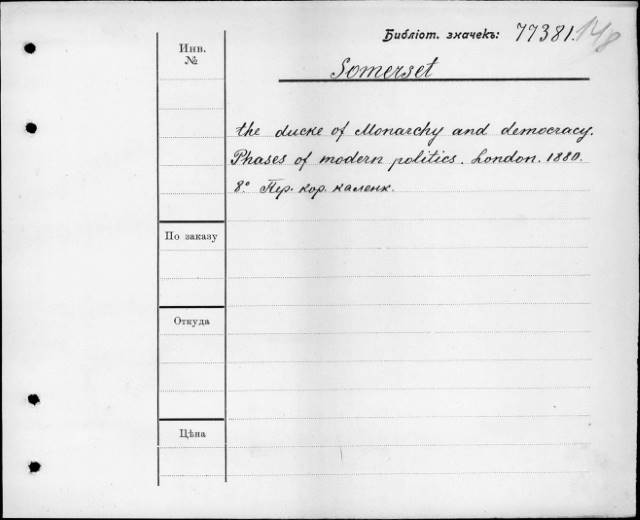 Библіот. значекъ: 77381. 14/8
Инв. №
Somerset
the ducke of Monarchy and democracy.
Phases of modern politics. London. 1880.
8° Пер. кор. каленк.
По заказу
Откуда
Цѣна